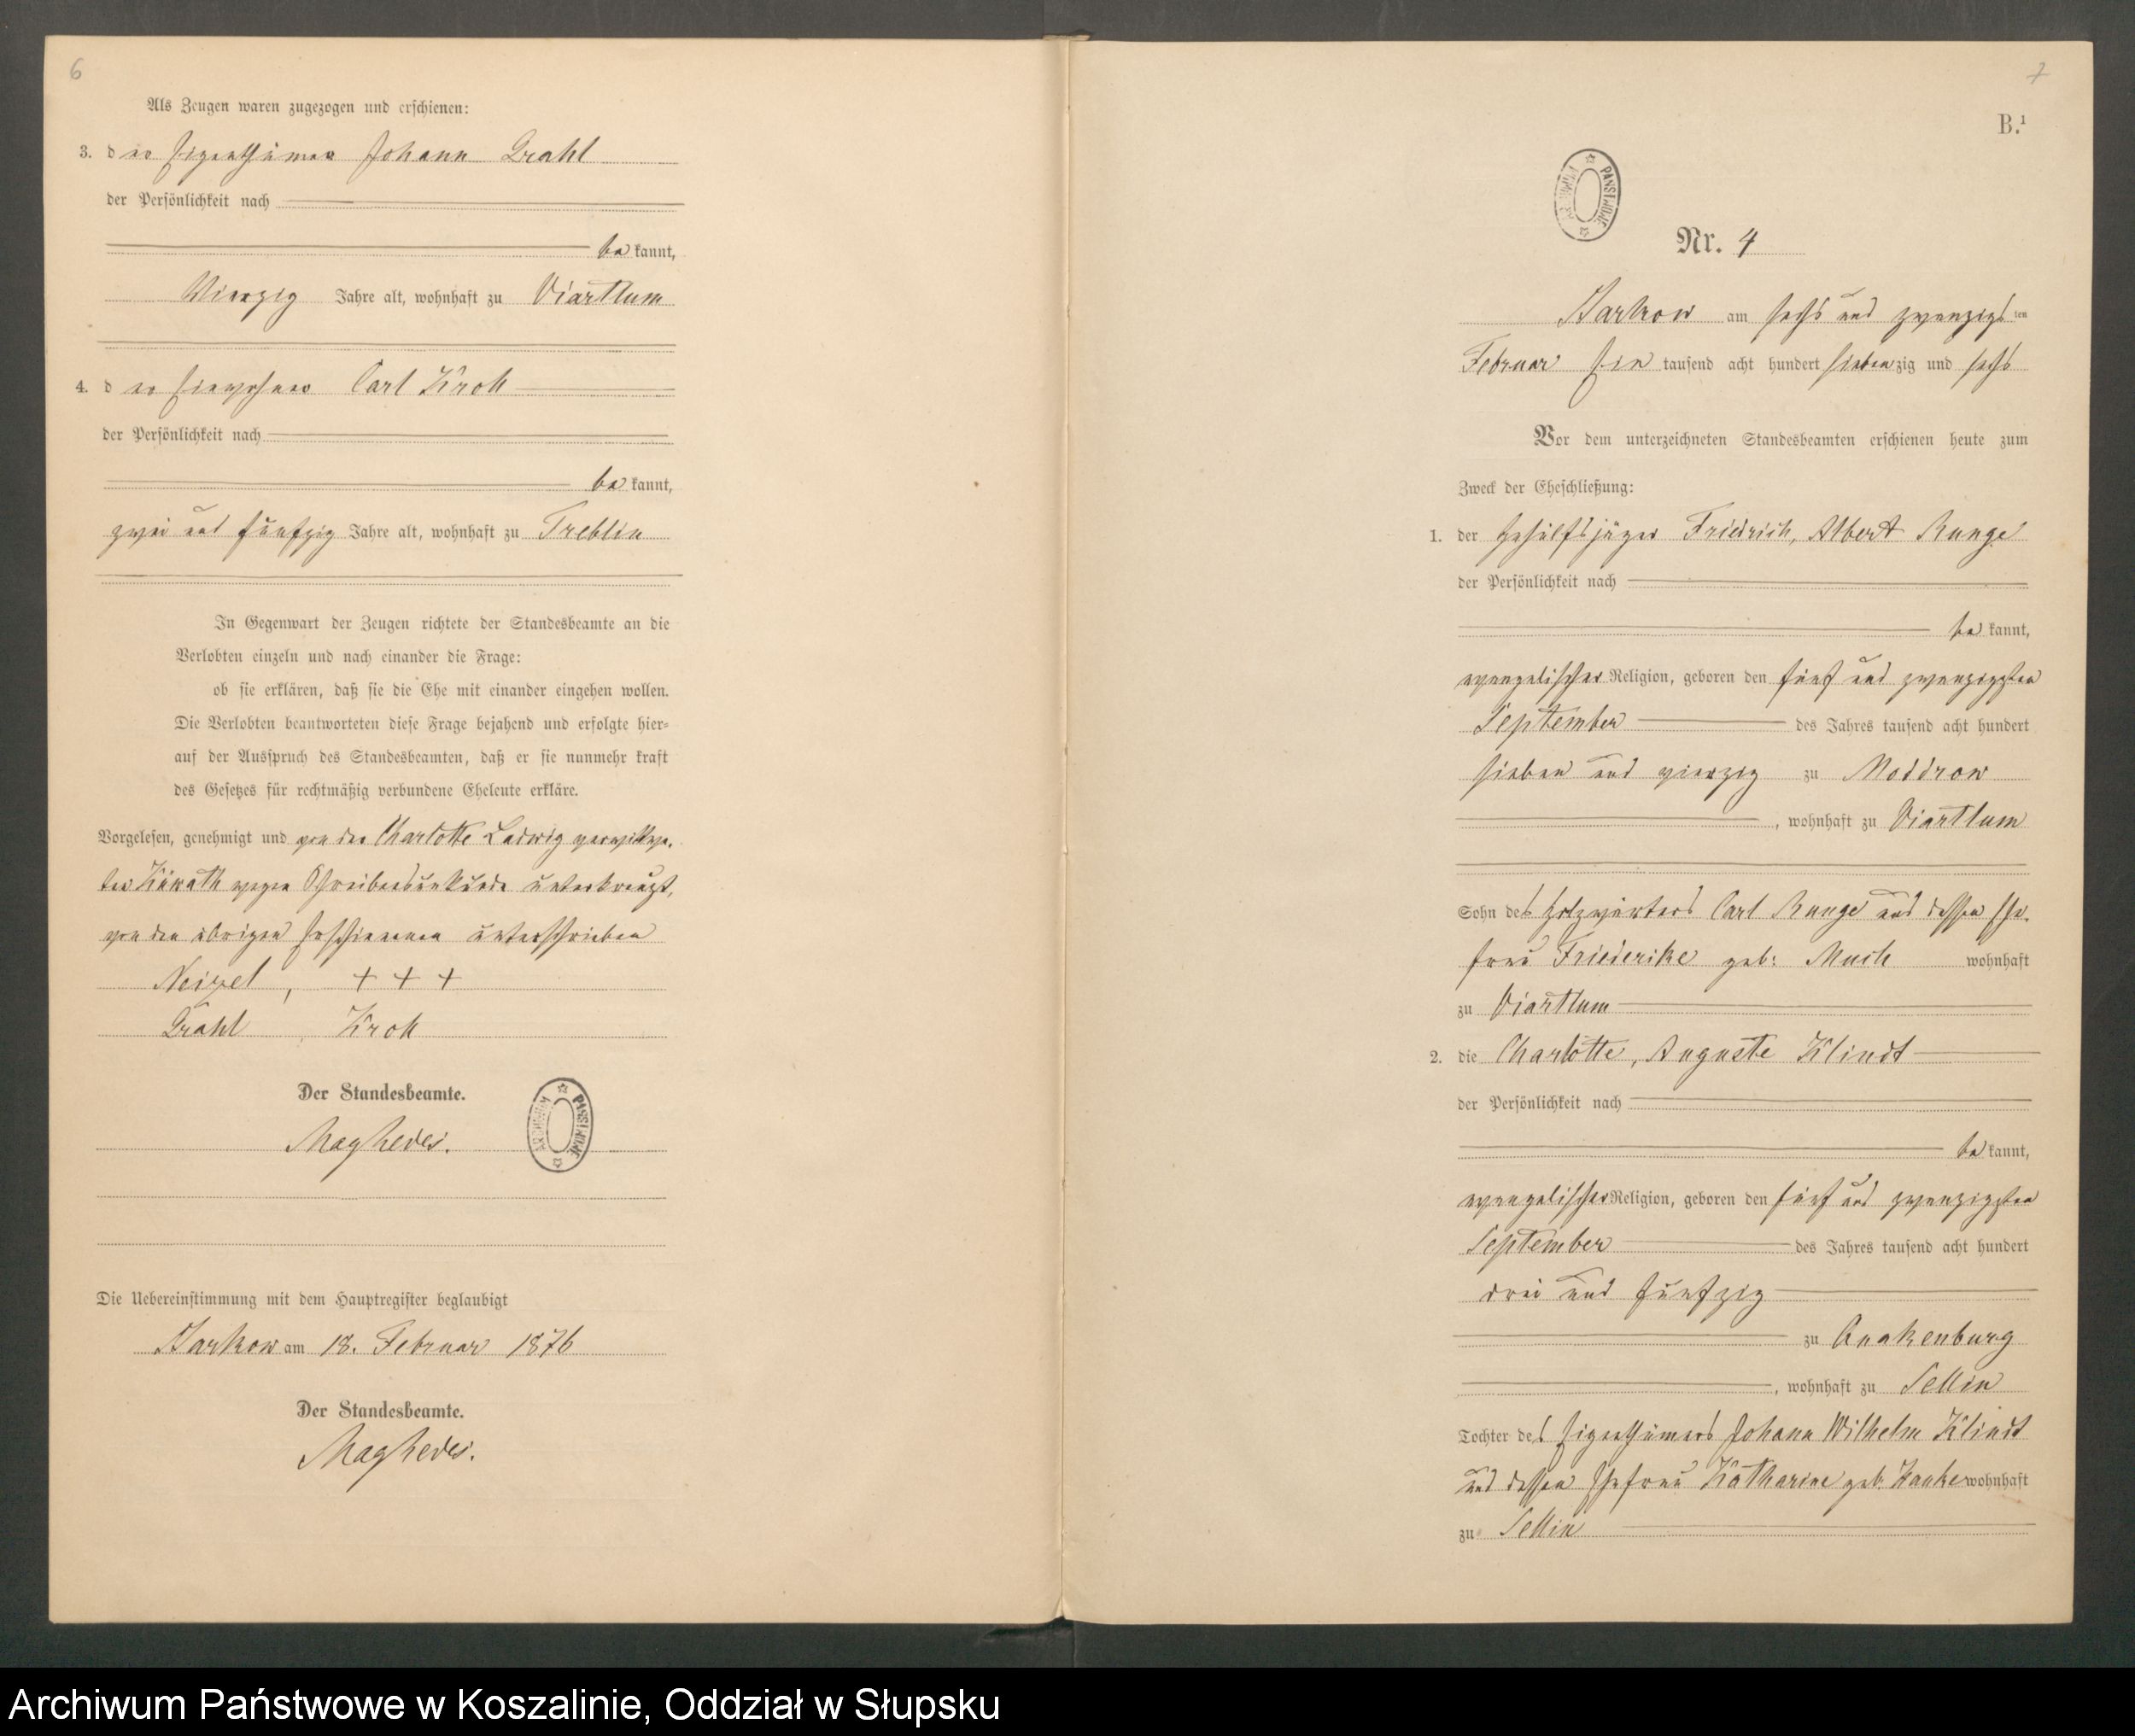 6
Als Zeugen waren zugezogen und erschienen:
3. der Eigenthümer Johann Grahl
der Persönlichkeit nach
bekannt,
Vierzig Jahre alt, wohnhaft zu Viartlum
4. der Einwohner Carl Kroll
der Persönlichkeit nach
bekannt,
zwei und fünfzig Jahre alt, wohnhaft zu Treblin
In Gegenwart der Zeugen richtete der Standesbeamte an die
Verlobten einzeln und nach einander die Frage:
ob sie erklären, daß sie die Ehe mit einander eingehen wollen.
Die Verlobten beantworteten diese Frage bejahend und erfolgte hier-
auf der Ausspruch des Standesbeamten, daß er sie nunmehr kraft
des Gesetzes für rechtmäßig verbundene Eheleute erkläre.
Vorgelesen, genehmigt und von der Charlotte Ladwig verwittwe-
ten wegen Schreibensunkunde unterkreuzt,
von den übrigen Erschienenen unterschrieben
Neizel, + + +
Grahl Kroll
Der Standesbeamte.
ARCHIWUM PAŃSTWOWE
Die Uebereinstimmung mit dem Hauptregister beglaubigt
Barkow am 18. Februar 1876
Der Standesbeamte.
7
B.¹
ARCHIWUM PAŃSTWOWE
Nr. 4
Barkow am sechs und zwanzigsten
Februar Ein tausend acht hundert siebenzig und sechs
Vor dem unterzeichneten Standesbeamten erschienen heute zum
Zweck der Eheschließung:
1. der Hehülfsjäger Friedrich, Albert Runge
der Persönlichkeit nach
bekannt,
evangelischer Religion, geboren den fünf und zwanzigsten
September des Jahres tausend acht hundert
sieben und vierzig zu Moddrow
, wohnhaft zu Viartlum
Sohn des Holzwärters Carl Runge und dessen Ehe-
frau Friederike geb: Much wohnhaft
zu Viartlum
2. die Charlotte, Auguste Klindt
der Persönlichkeit nach
bekannt,
evangelischer Religion, geboren den fünf und zwanzigsten
September des Jahres tausend acht hundert
drei und fünfzig
zu Quakenburg
, wohnhaft zu Sellin
Tochter des Eigenthümers Johann Wilhelm Klindt
und dessen Ehefrau Katharine geb. Hanke wohnhaft
zu Sellin
Archiwum Państwowe w Koszalinie, Oddział w Słupsku